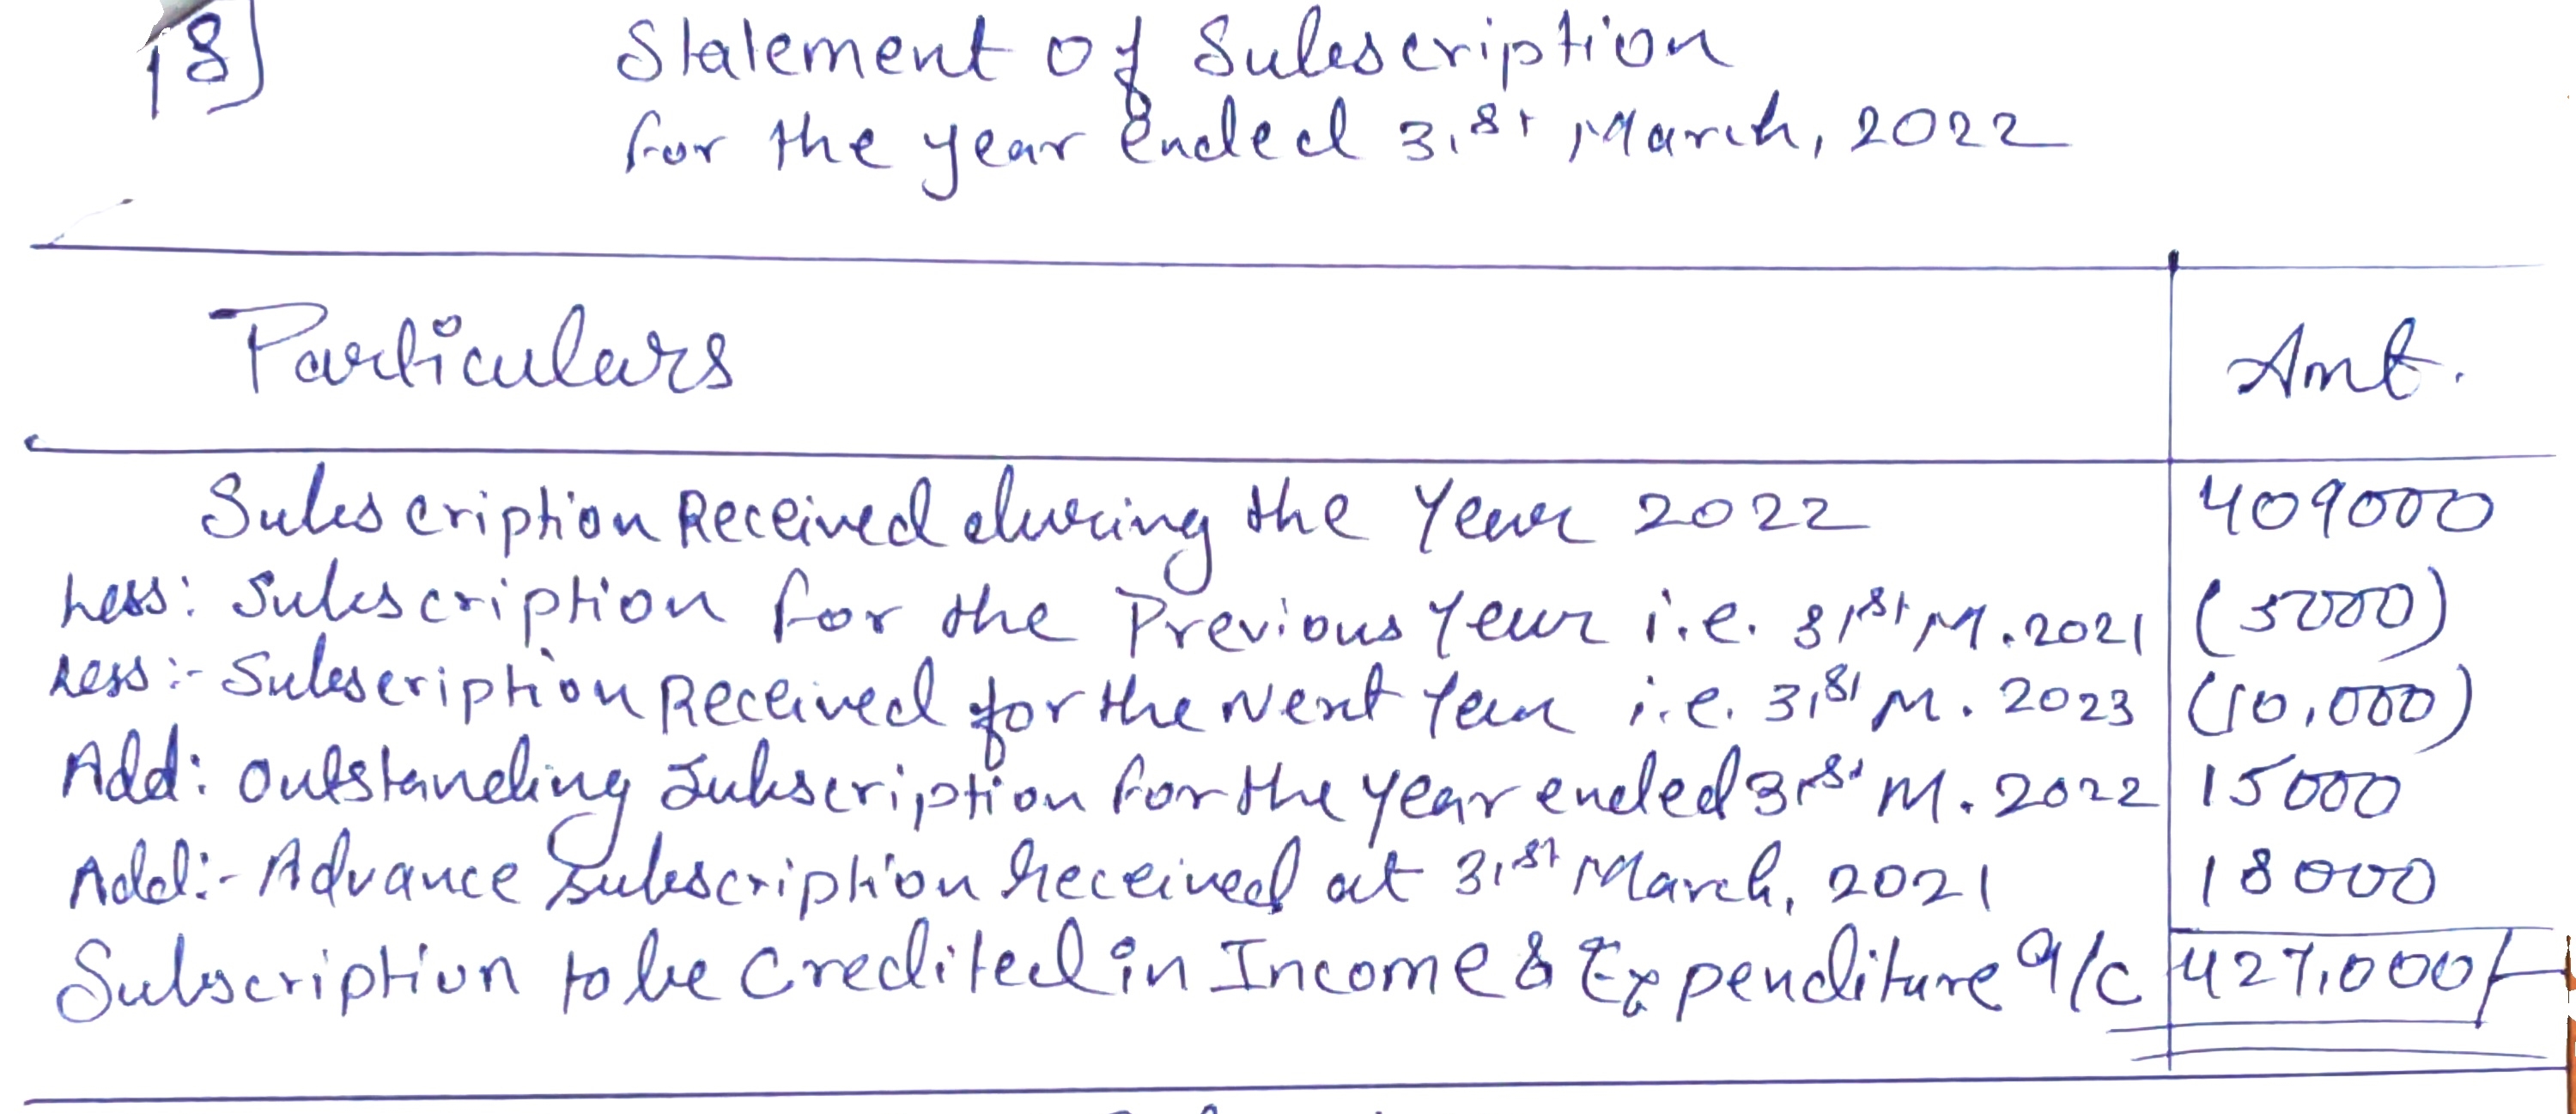 18]
Statement of Subscription
for the year ended 31st March, 2022
Particulars Amt.
Subscription Received during the Year 2022 409000
Less: Subscription for the Previous Year i.e. 31st M. 2021 (5000)
Less:- Subscription Received for the Next Year i.e. 31st M. 2023 (10,000)
Add: Outstanding Subscription for the year ended 31st M. 2022 15000
Add:- Advance Subscription Received at 31st March, 2021 18000
Subscription to be Credited in Income & Expenditure A/C 427,000/-